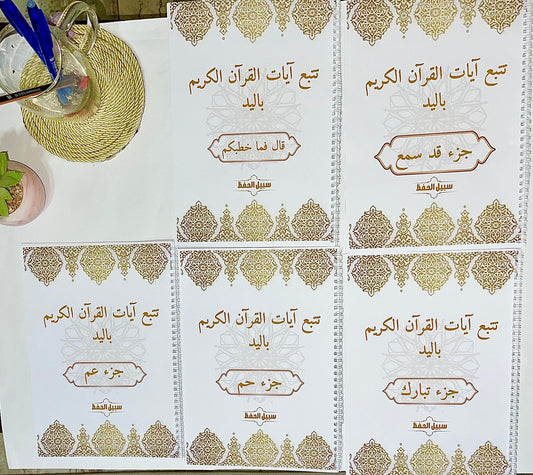 تتبع آيات القرآن الكريم
باليد
جزء قد سمع
سبيل الحفظ
تتبع آيات القرآن الكريم
باليد
قال فما خطبكم
سبيل الحفظ
تتبع آيات القرآن الكريم
باليد
جزء تبارك
سبيل الحفظ
تتبع آيات القرآن الكريم
باليد
جزء حم
سبيل الحفظ
تتبع آيات القرآن الكريم
باليد
جزء عم
سبيل الحفظ